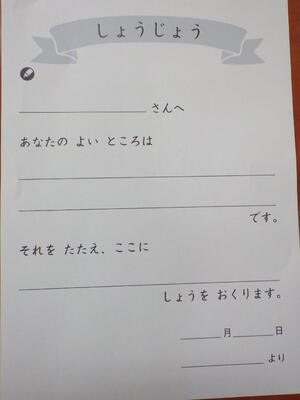 しょうじょう
さんへ
あなたの よい ところは
です。
それを たたえ、ここに
しょうを おくります。
月 日
より